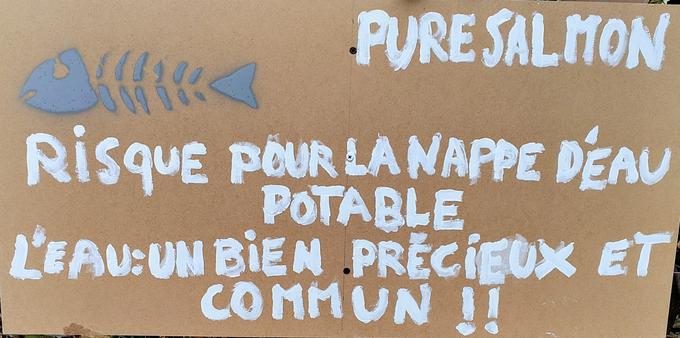 PURE SALMON
RiSQUE POUR LA NAPPE D'ÉAU
POTABLE
L'EAU: UN BiEN PRÉCiEUX ET
COMMUN !!